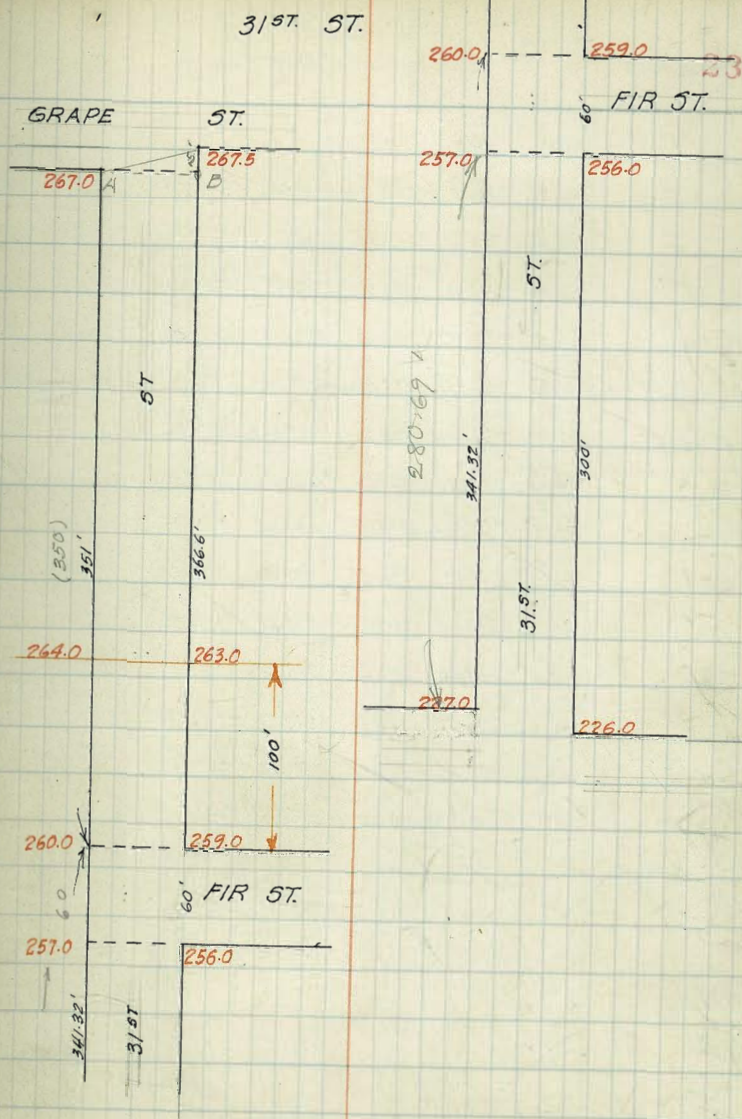 31ST. ST.
23
GRAPE ST.
267.0 A
15'
267.5
B
ST
(350)
351'
366.6'
264.0
263.0
100'
260.0
259.0
60
60'
FIR ST.
257.0
256.0
341.32'
31ST
260.0
259.0
60'
FIR ST.
257.0
256.0
ST.
280.69
341.32'
300'
31ST.
227.0
226.0